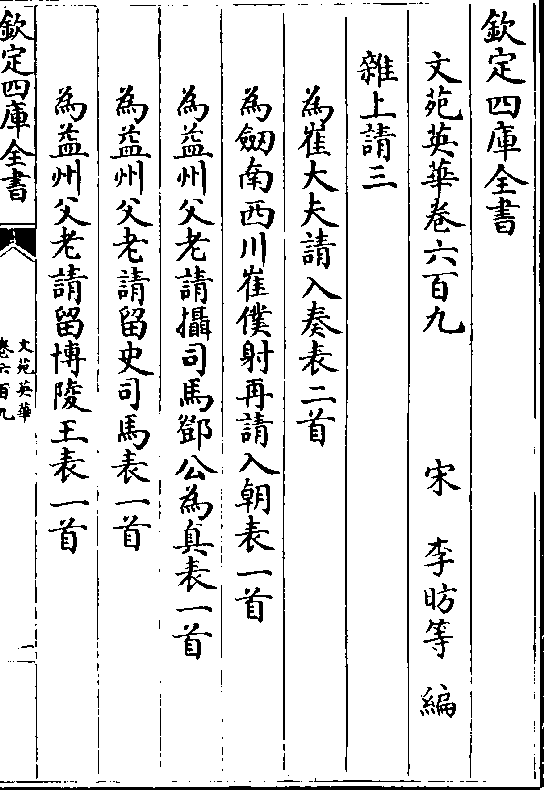 欽定四庫全書
文苑英華卷六百九　宋　李昉等　編
雜上請三
為崔大夫請入奏表二首
為劒南西川崔僕射再請入朝表一首
為益州父老請攝司馬鄧公為真表一首
為益州父老請留史司馬表一首
為益州父老請留博陵王表一首
欽定四庫全書
文苑英華
卷六百九
一